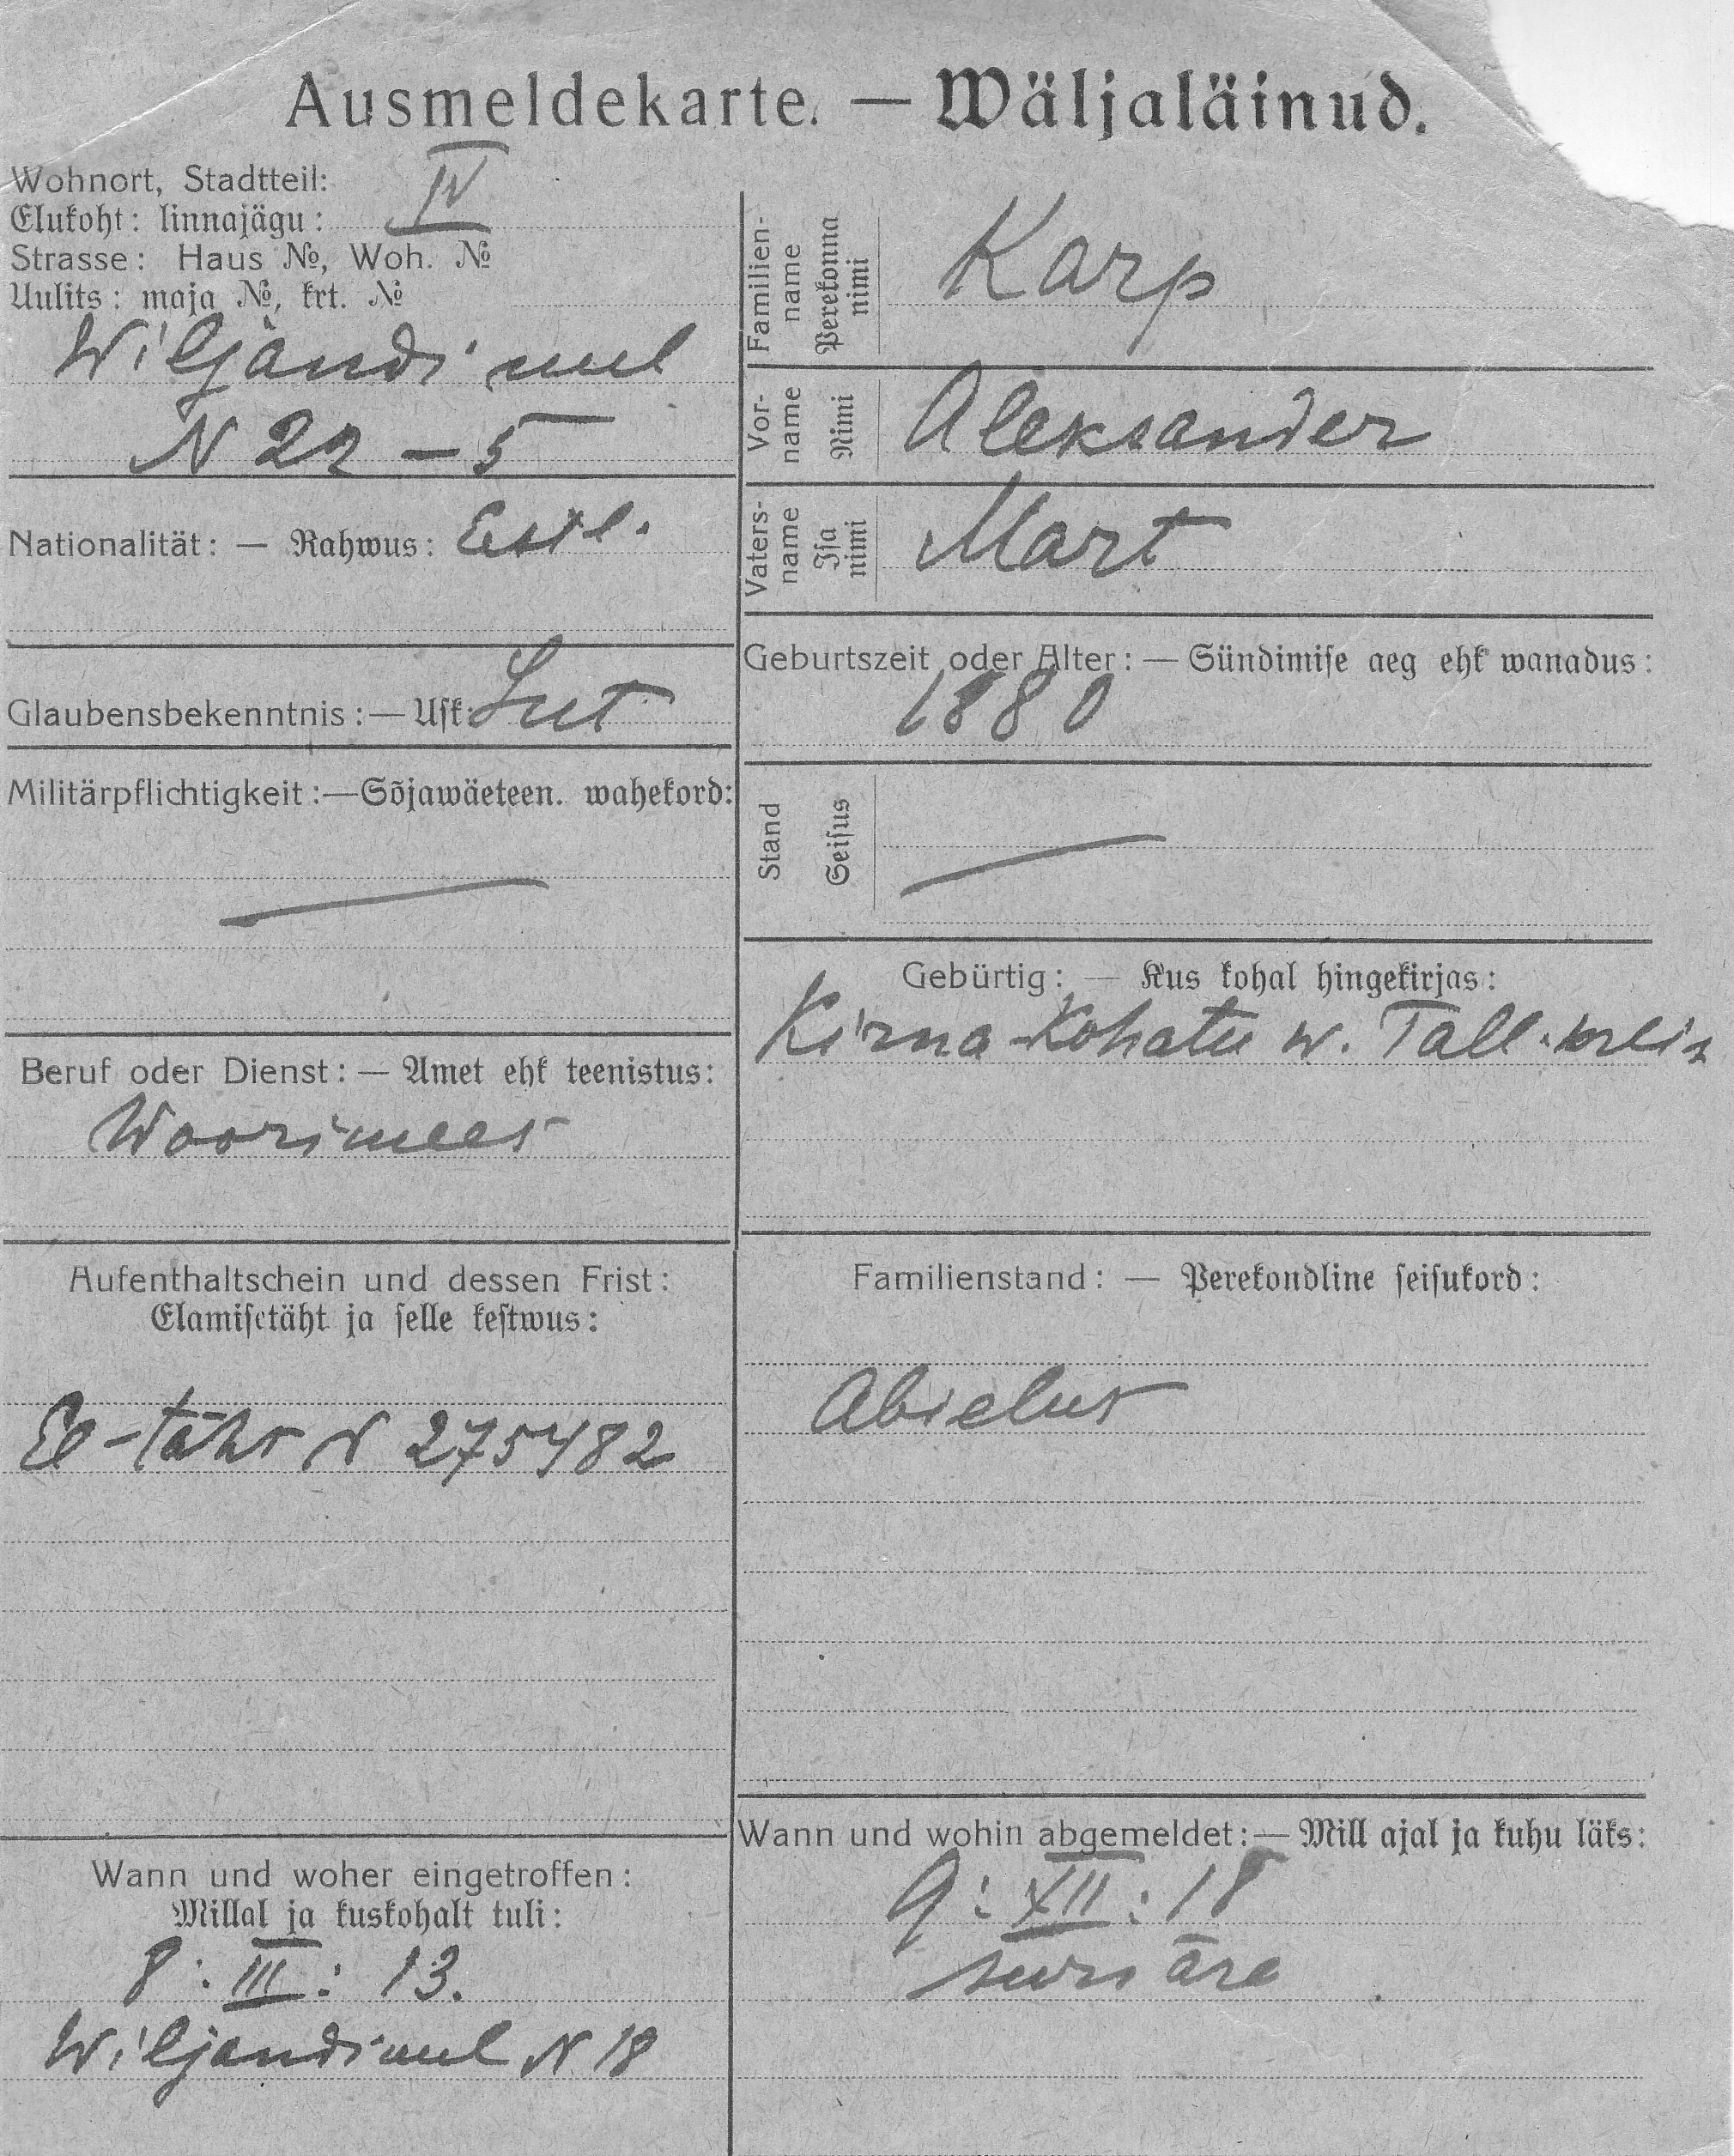 Ausmeldekarte. — Wäljaläinud.
Wohnort, Stadtteil:
Elukoht: linnajägu: IV
Strasse: Haus №, Woh. №
Uulits: maja №, krt. №
Wiljandi uul
N 22 – 5
Nationalität: — Rahwus: Estl.
Glaubensbekenntnis:— Usk: Lut
Militärpflichtigkeit:—Sõjawäeteen. wahekord:
—
Beruf oder Dienst: — Amet ehk teenistus:
Woorimees
Aufenthaltschein und dessen Frist:
Elamisetäht ja selle kestwus:
El-täht N 275482
Wann und woher eingetroffen:
Millal ja kuskohalt tuli:
8: III: 13.
Wiljandi uul N 18
Familien-
name
Perekonna
nimi
Karp
Vor-
name
Nimi
Aleksander
Vaters-
name
Isa
nimi
Mart
Geburtszeit oder Alter: — Sündimise aeg ehk wanadus:
1880
Stand
Seisus
—
Gebürtig: — Kus kohal hingekirjas:
Kirna-Kohatu w. Tall. kreis
Familienstand: — Perekondline seisukord:
Abielus
Wann und wohin abgemeldet:— Mill ajal ja kuhu läks:
9: XII: 18
suri ära